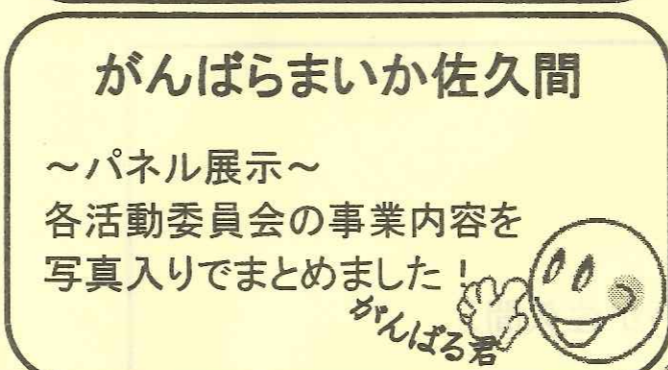 がんばらまいか佐久間
～パネル展示～
各活動委員会の事業内容を
写真入りでまとめました！
がんばる君